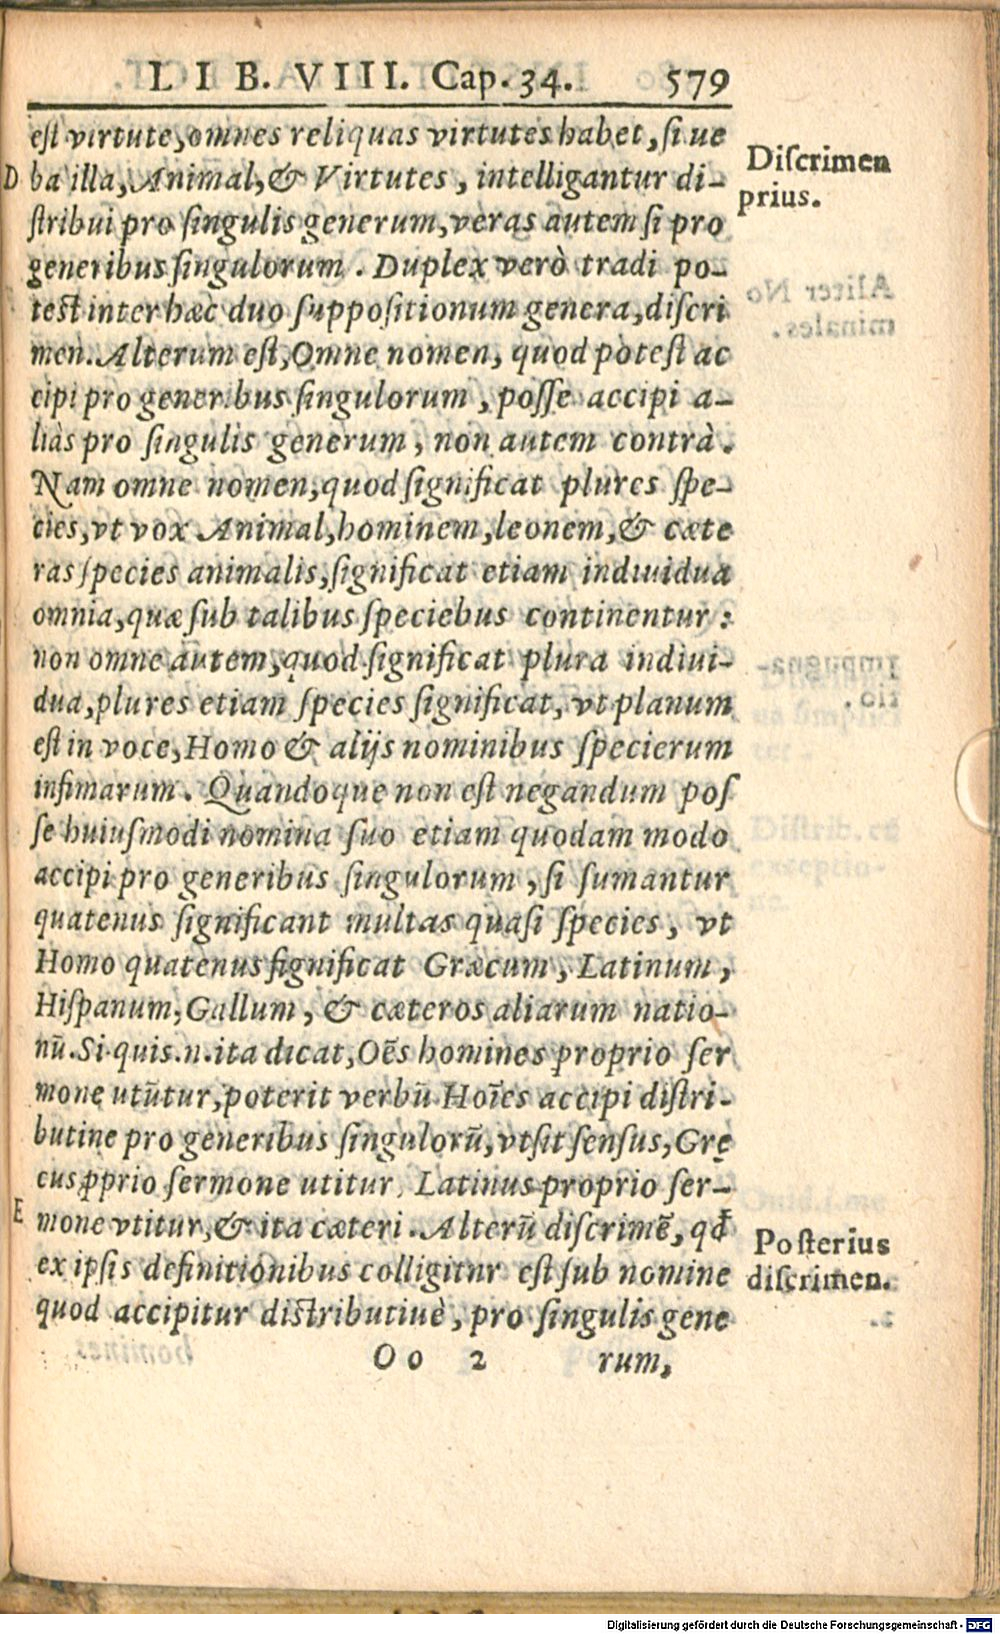 LIB. VIII. Cap. 34. 579
est virtute, omnes reliquas virtutes habet, si ue
D ba illa, Animal, & Virtutes, intelligantur di-
stribui pro singulis generum, veras autem si pro
generibus singulorum. Duplex verò tradi po-
test inter hæc duo suppositionum genera, discri
men. Alterum est, Omne nomen, quod potest ac
cipi pro generibus singulorum, posse accipi a-
liàs pro singulis generum, non autem contrà.
Nam omne nomen, quod significat plures spe-
cies, vt vox Animal, hominem, leonem, & cæte
ras species animalis, significat etiam indiuidua
omnia, quæ sub talibus speciebus continentur:
non omne autem, quod significat plura indiui-
dua, plures etiam species significat, vt planum
est in voce, Homo & alijs nominibus specierum
infimarum. Quandoque non est negandum pos
se huiusmodi nomina suo etiam quodam modo
accipi pro generibus singulorum, si sumantur
quatenus significant multas quasi species, vt
Homo quatenus significat Græcum, Latinum,
Hispanum, Gallum, & cæteros aliarum natio-
nū. Si quis .n. ita dicat, Oēs homines proprio ser
mone utūtur, poterit verbū Hoīes accipi distri-
butiue pro generibus singulorū, vt sit sensus, Gre
cus ꝓprio sermone utitur, Latinus proprio ser-
E mone vtitur, & ita cæteri. Alterū discrimē, qđ
ex ipsis definitionibus colligitur est sub nomine
quod accipitur distributiuè, pro singulis gene
Oo 2 rum,
Discrimen
prius.
Posterius
discrimen.
Digitalisierung gefördert durch die Deutsche Forschungsgemeinschaft - DFG